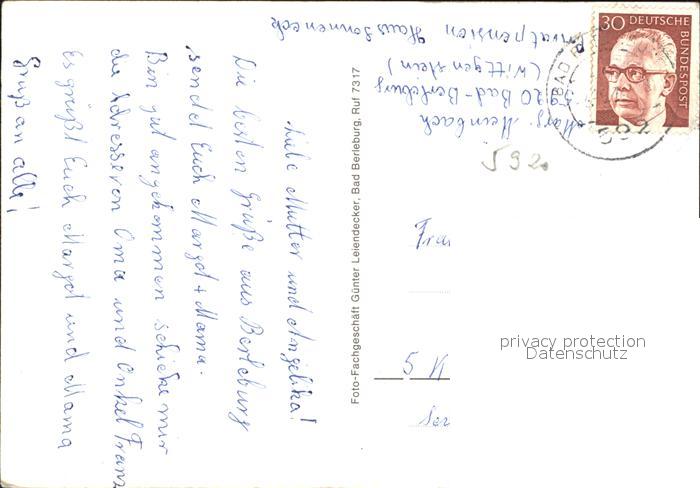 Marg. Meinbach
5920 Bad-Berleburg
(Wittgenstein)
Privatpension Haus Sonneneck
Liebe Mutter und Angelika!
Die besten Grüße aus Berleburg
sendet Euch Margot + Mama.
Bin gut angekommen schicke mir
die Adresse von Oma und Onkel Franz
Es grüßt Euch Margot und Mama
Gruß an alle!
Foto-Fachgeschäft Günter Leiendecker, Bad Berleburg, Ruf 7317
30 DEUTSCHE
BUNDESPOST
BAD
592
592
Frau
5 K
privacy protection
Datenschutz